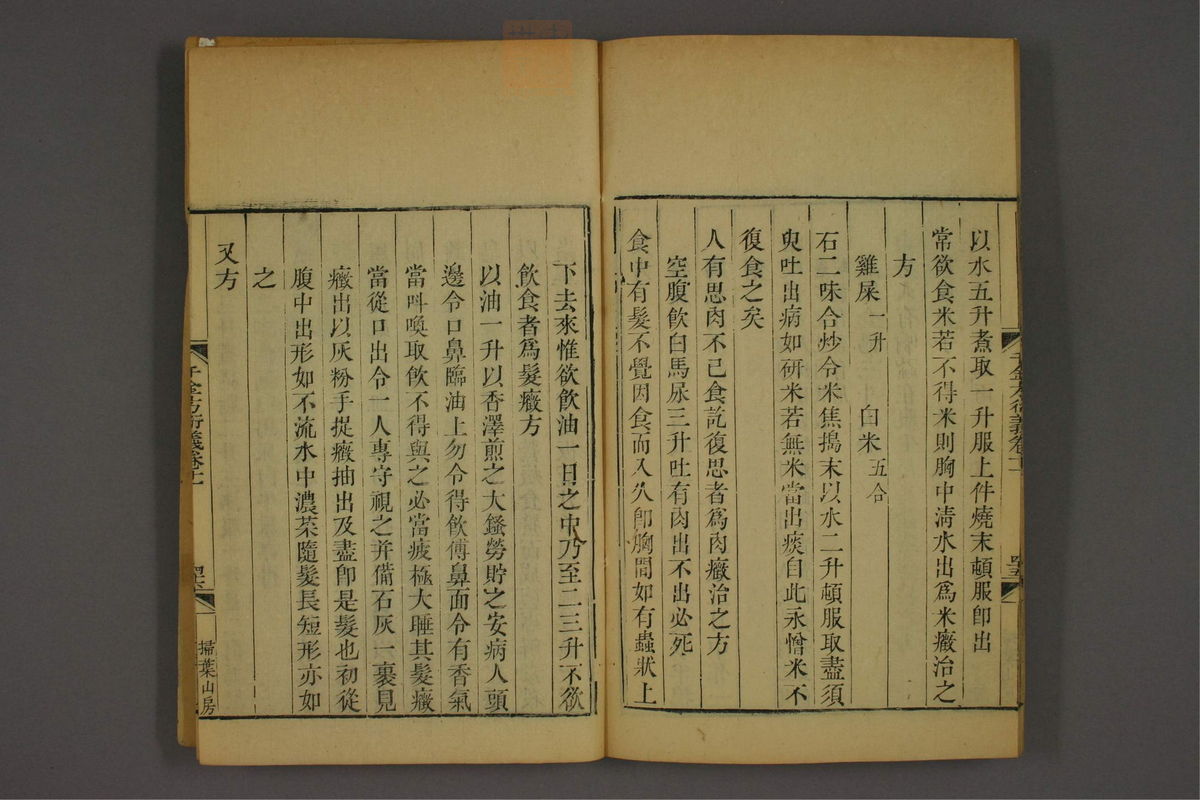 以水五升煮取一升服上件燒末頓服卽出
常欲食米若不得米則胸中淸水出爲米癥治之
方
雞屎一升 白米五合
石二味合炒令米焦搗末以水二升頓服取盡須
臾吐出病如硏米若無米當出痰自此永憎米不
復食之矣
人有思肉不已食訖復思者爲肉癥治之方
空腹飲白馬尿三升吐有肉出不出必死
食中有髮不覺因食而入久卽胸間如有蟲狀上
千金方衍義卷十一
下去來惟欲飲油一日之中乃至二三升不欲
飲食者爲髮癥方
以油一升以香澤煎之大鎝勞貯之安病人頭
邊令口鼻臨油上勿令得飲傅鼻面令有香氣
當呌喚取飲不得與之必當疲極大睡其髮癥
當從口出令一人專守視之并備石灰一裹見
癥出以灰粉手捉癥抽出及盡卽是髮也初從
腹中出形如不流水中濃菜隨髮長短形亦如
之
又方
千金方衍義卷十一
掃葉山房